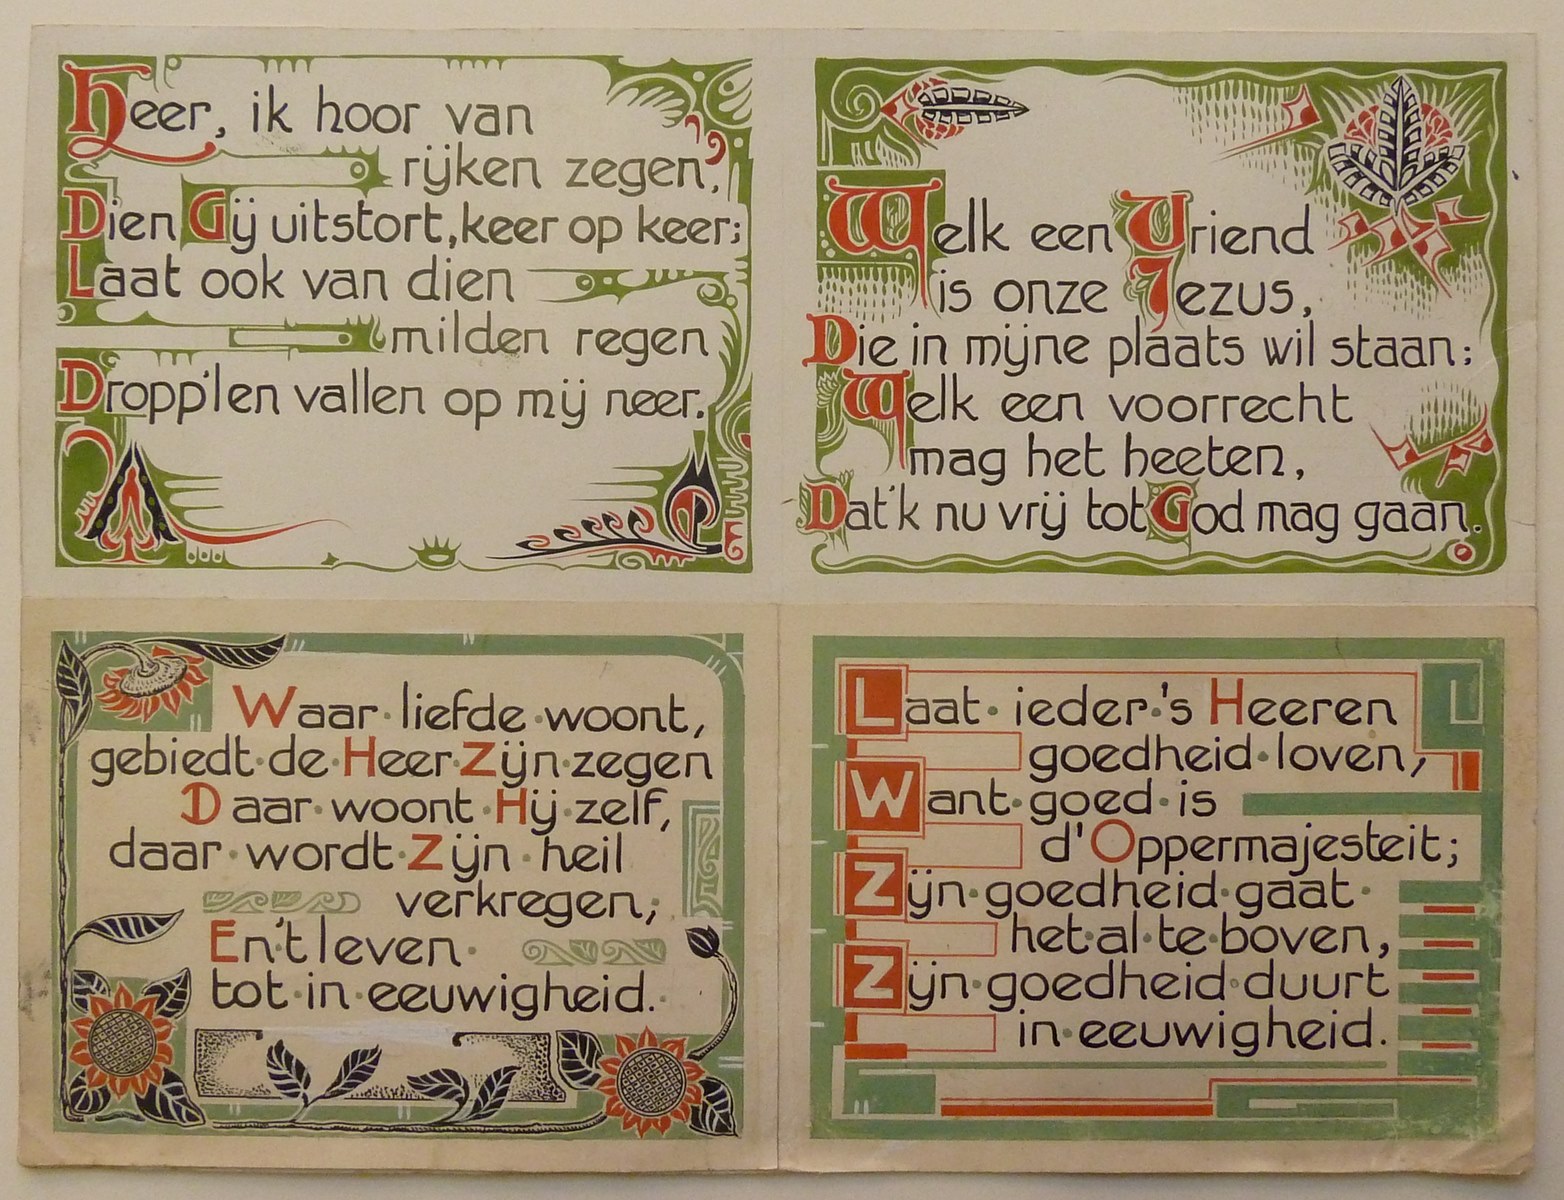 Heer, ik hoor van
rijken zegen,
Dien Gij uitstort, keer op keer;
Laat ook van dien
milden regen
Dropp'len vallen op mij neer.
Welk een Vriend
is onze Jezus,
Die in mijne plaats wil staan;
Welk een voorrecht
mag het heeten,
Dat'k nu vrij tot God mag gaan.
Waar·liefde·woont,
gebiedt·de·Heer·Zijn·zegen
Daar·woont·Hij·zelf,
daar·wordt·Zijn·heil
verkregen;
En·'t leven·
tot·in·eeuwigheid.
Laat·ieder·'s Heeren
goedheid·loven,
Want·goed·is
d'Oppermajesteit;
Zijn·goedheid·gaat·
het·al·te·boven,
Zijn·goedheid·duurt
in·eeuwigheid.